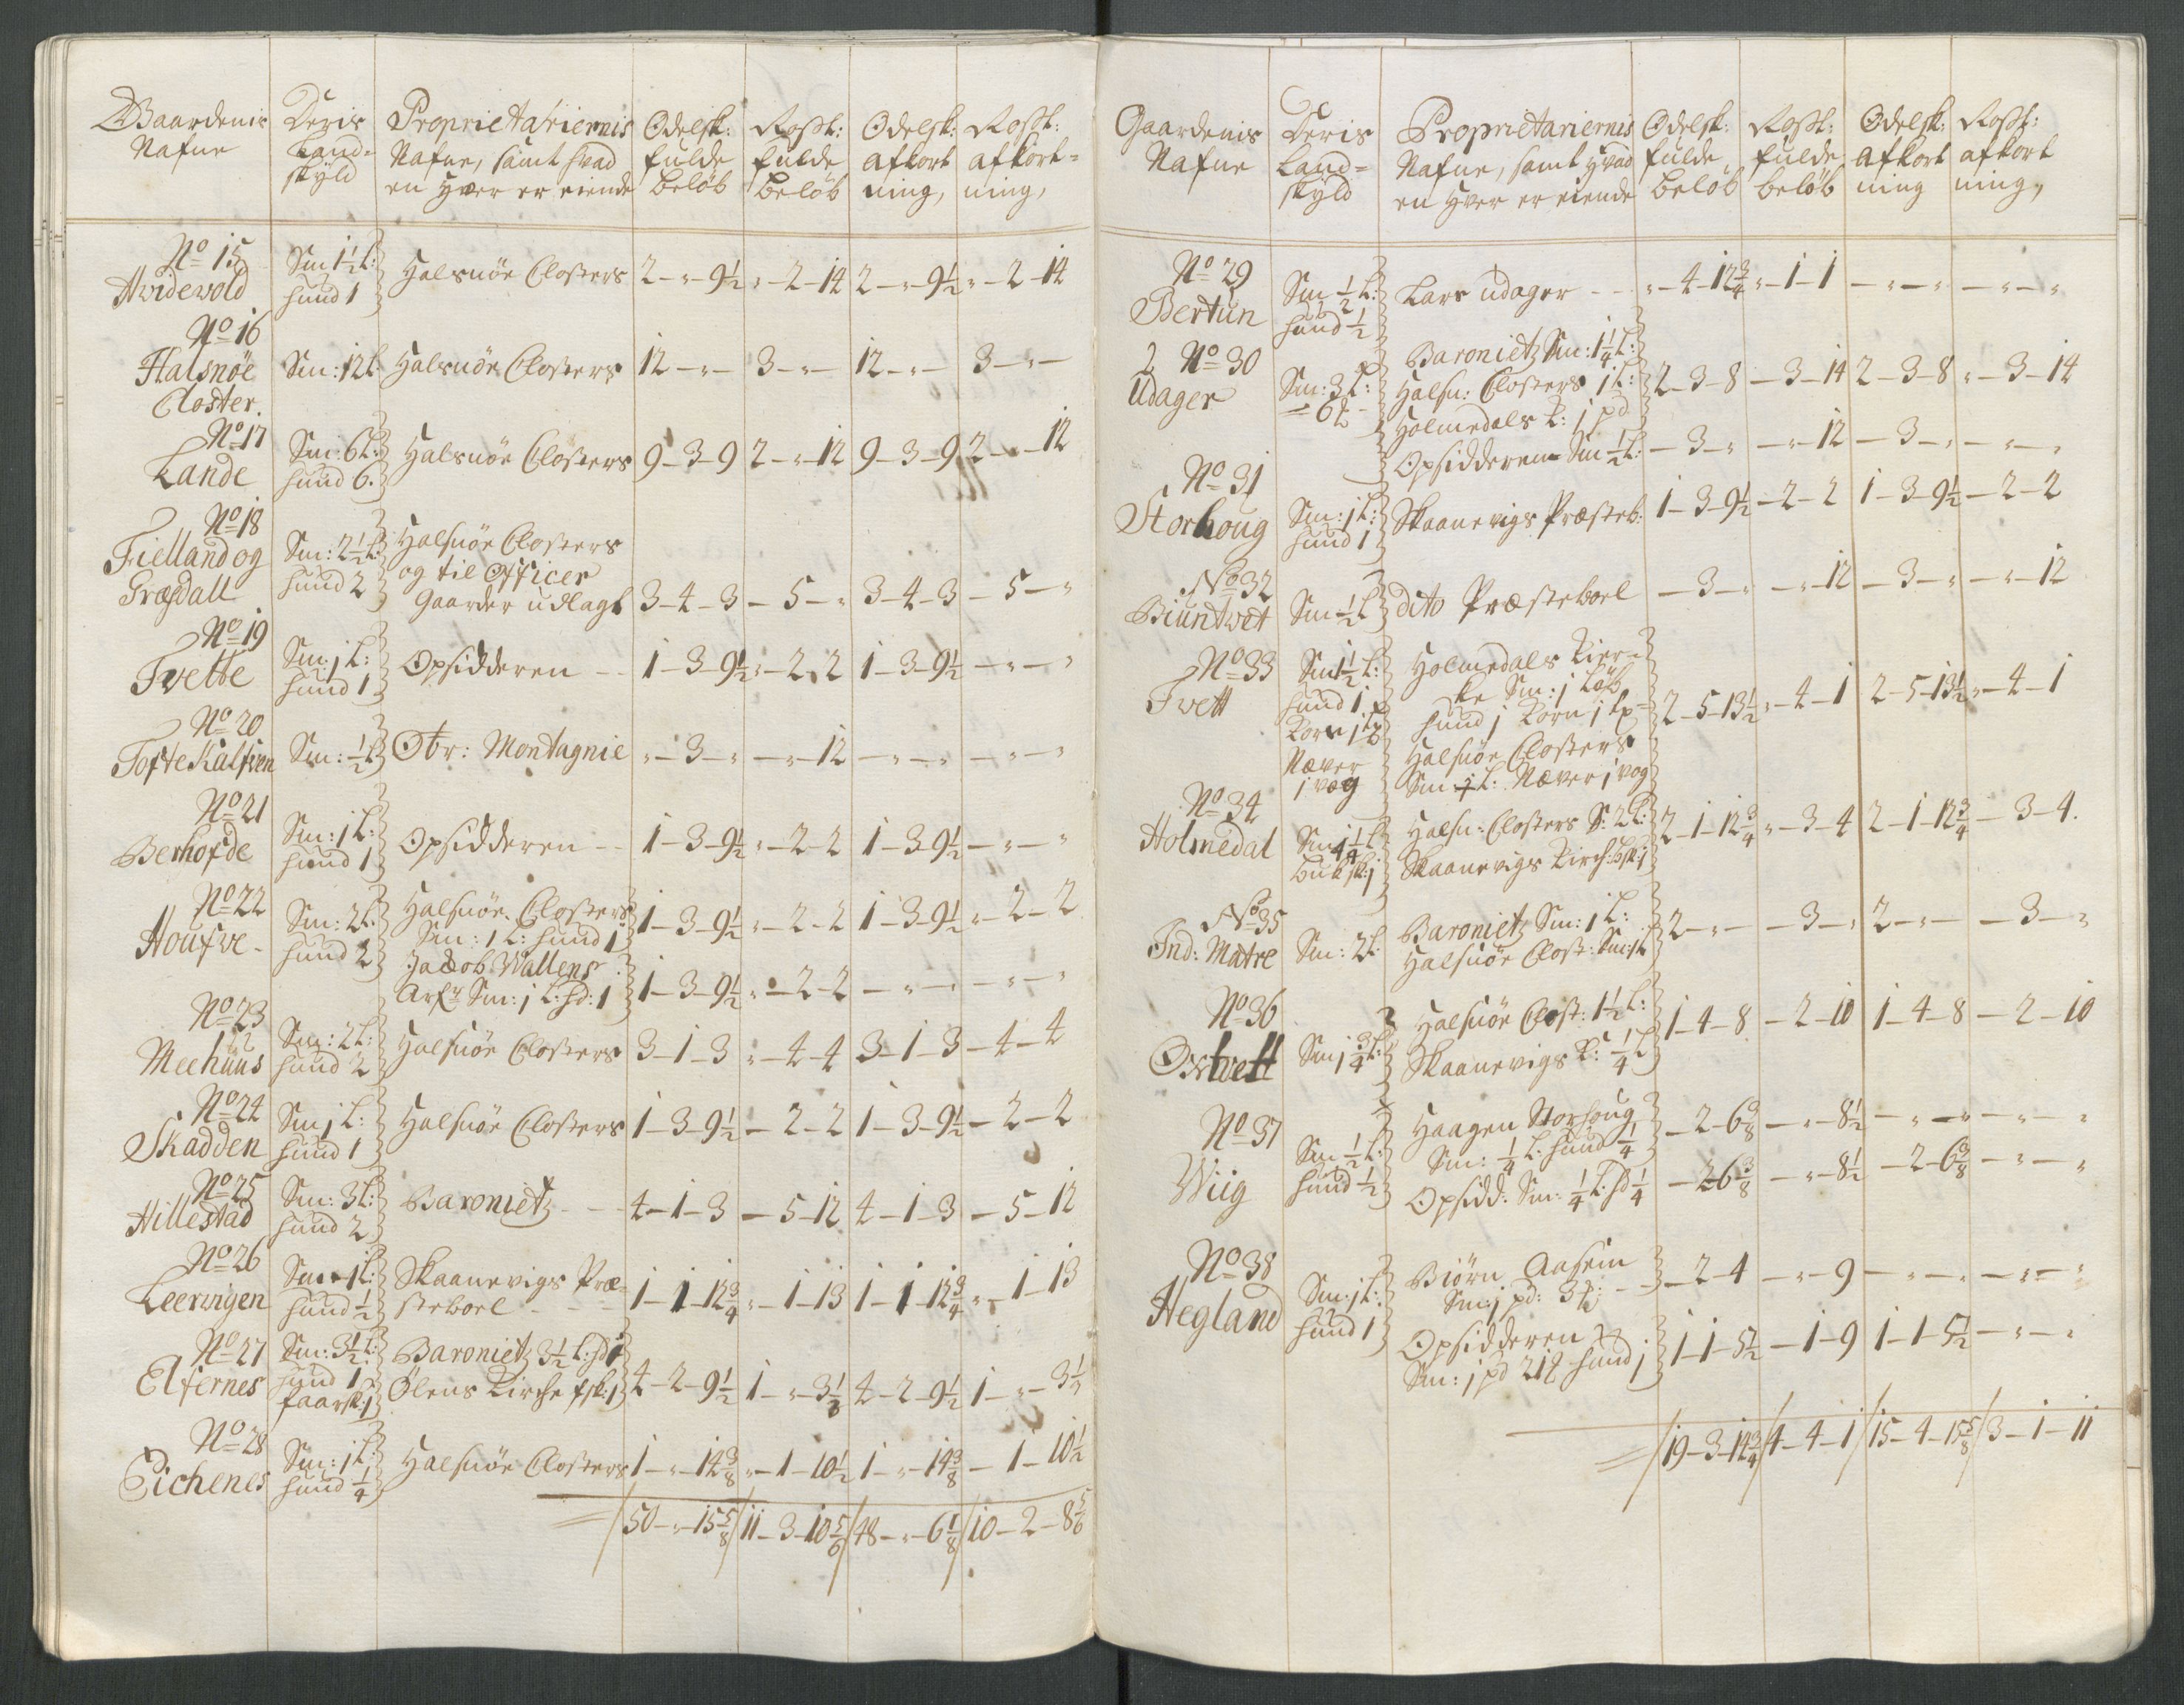 Gaardenis Nafne
Deris Land=skyld
Proprietariernis Nafne, samt hvad en hver er eiende
Odelsk: fulde beløb
Rostk: fulde beløb
Odelsk: afkort ning,
Rostk: afkort= ning,
No 15 Hvidevold
Sm 1½ L: hund 1
Halsnöe Closters
2 - „ - 9½ „ - 2 - 14 2 - „ - 9½ „ - 2 - 14
No 16 Halsnöe Closter.
Sm: 12 L:
Halsnöe Closters
12 - „ - 3 - „ - 12 - „ - 3 - „ -
No 17 Lande
Sm: 6 L: hund 6.
Halsnöe Closters
9 - 3 - 9 2 - „ - 12 9 - 3 - 9 2 - „ - 12
No 18 Fielland og Græsdall
Sm: 2½ L: hund 2
Halsnöe Closters og til Officer Gaarder udlagt
3 - 4 - 3 - 5 - „ 3 - 4 - 3 - 5 - „
No 19 Tvette
Sm: 1 L: hund 1
Opsidderen
1 - 3 - 9½ „ - 2 - 2 1 - 3 - 9½ - „ - „
No 20 TofteKalfven
Sm: ½ L
Obr: Montagnie
„ - 3 - „ - „ - 12 - „ - „ - „ - „
No 21 Berhofde
Sm: 1 L: hund 1
Opsidderen
1 - 3 - 9½ „ - 2 - 2 1 - 3 - 9½ - „ - „
No 22 Houfve -
Sm: 2 L: hund 2
Halsnöe Closters Sm: 1 L: hund 1
1 - 3 - 9½ „ - 2 - 2 1 - 3 - 9½ „ - 2 - 2
Jacob Wallens Arf: Sm: 1 L: hd: 1
1 - 3 - 9½ „ - 2 - 2 - „ - „ - „ - „
No 23 Meehuus
Sm: 2 L: hund 2
Halsnöe Closters
3 - 1 - 3 „ - 4 - 4 3 - 1 - 3 - 4 - 4
No 24 Skadden
Sm 1 L: hund 1
Halsnöe Closters
1 - 3 - 9½ - 2 - 2 1 - 3 - 9½ - 2 - 2
No 25 Hillestad
Sm: 3 L: hund 2
Baroniet
4 - 1 - 3 - 5 - 12 4 - 1 - 3 - 5 - 12
No 26 Leervigen
Sm: 1 L: hund ½
Skaanevigs Præ= steboel
1 - 1 - 12¾ „ - 1 - 13 1 - 1 - 12¾ „ - 1 - 13
No 27 Elfernes
Sm: 3½ L: hund 1 faarsk: 1
Baroniet 3½ L: hd 1 Ölens Kirche fsk: 1
4 - 2 - 9½ 1 - „ - 3½ 4 - 2 - 9½ 1 - „ - 3½
No 28 Eichenes
Sm: 1 L: hund ¼
Halsnöe Closters
1 - „ - 14⅜ „ - 1 - 10½ 1 - „ - 14⅜ - 1 - 10½
50 - „ - 15⅝ 11 - 3 - 10⅚ 48 - „ - 6⅛ 10 - 2 - 8⅚
Gaardenis Nafne
Deris Land= skyld
Proprietariernis Nafne, samt hvad en hver er eiende
Odelsk: fulde beløb
Rostk: fulde beløb
Odelsk: afkort ning
Rostk: afkort ning,
No 29 Bertun
Sm ½ L: hund ½
Lars udager
„ - 4 - 12¾ „ - 1 - 1 - „ - „ - „ - „
No 30 Udager
Sm: 3 L: = 6
Baroniet Sm: 1¼ L: Halsn: Closters 1 L: Holmedals K: 1 pd
2 - 3 - 8 - 3 - 14 2 - 3 - 8 „ - 3 - 14
Opsidderen Sm ½ L:
- 3 - „ - „ - 12 - 3 - „ - „ - „
No 31 Storhoug
Sm: 1 L: hund 1
Skaanevigs Præsteb:
1 - 3 - 9½ - 2 - 2 1 - 3 - 9½ - 2 - 2
No 32 Biuntvet
Sm ½ L:
dito Præsteboel
- 3 - „ - „ - 12 - 3 - „ - „ - 12
No 33 Tvett
Sm 1½ L: hund 1 Korn 1 Næver 1 vog
Holmedals Kier= ke Sm: 1 Löb hund 1 Korn 1 Halsnöe Closters Sm ½ L: Næver 1 vog
2 - 5 - 13½ „ - 4 - 1 2 - 5 - 13½ „ - 4 - 1
No 34 Holmedal
buksk: 1
Halsn: Closters S: 2 L: Skaanevigs Kirch: bsk: 1
2 - 1 - 12¾ „ - 3 - 4 2 - 1 - 12¾ - 3 - 4.
No 35 Ind: Matre
Sm: 2 L:
Baroniet Sm: 1 L: Halsnöe Clost: Sm: 1 L
2 - „ - - 3 - „ 2 - „ - - 3 - „
No 36 Oxtvett
Sm 1¾ L:
Halsnöe Clost: 1½ L: Skaanevigs K: ¼ L
1 - 4 - 8 - 2 - 10 1 - 4 - 8 - 2 - 10
No 37 Wiig
Sm ½ L: hund ½
Haagen Storhoug Sm: ¼ L: hund ¼
- 2 - 6⅜ - „ - 8½ - „ - „ - „ - „
Opsidd: Sm: ¼ L: hd ¼
- 2 - 6⅜ - „ - 8½ - 2 - 6⅜ - „ - „
No 38 Hegland
Sm: 1 L: hund 1
Biörn Aasem Sm: 1 pd: 3
- 2 - 4 - „ - 9 - „ - „ - „ - „
Opsidderen Sm: 1 pd 21 hund 1
1 - 1 - 5½ - 1 - 9 1 - 1 - 5½ - „ - „
19 - 3 - 14¾ 4 - 4 - 1 15 - 4 - 15⅝ 3 - 1 - 11